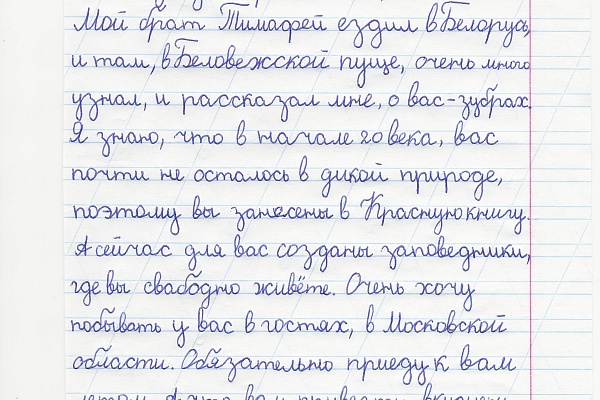 Мой брат Тимафей ездил в Белорусь,
и там, в Беловежской пуще, очень много
узнал, и рассказал мне, о вас-зубрах.
Я знаю, что в начале 20 века, вас
почти не осталось в дикой природе,
поэтому вы занесены в Красную книгу.
А сейчас для вас созданы заповедники,
где вы свабодно живёте. Очень хочу
побывать у вас в гостях, в Московской
области. Обязательно приеду к вам